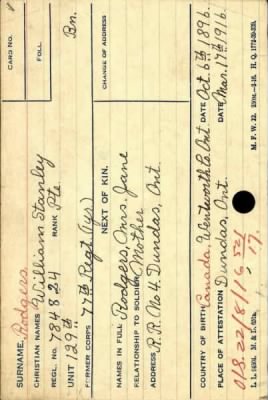 CARD NO.
FOLL.
SURNAME, Rodgers
CHRISTIAN NAMES William Stanley
REGL. NO. 784824 RANK Pte
UNIT 129th Bn.
FORMER CORPS 77th Regt (1yr)
NEXT OF KIN.
NAMES IN FULL Rodgers, Mrs. Jane
RELATIONSHIP TO SOLDIER Mother
ADDRESS R.R. No 4 Dundas, Ont.
CHANGE OF ADDRESS
COUNTRY OF BIRTH Canada Wentworth Co Ont DATE Oct. 6th 1896
PLACE OF ATTESTATION Dundas, Ont. DATE Mar. 17th 1916
M. F. W. 22. H. Q. 1772-39-839.